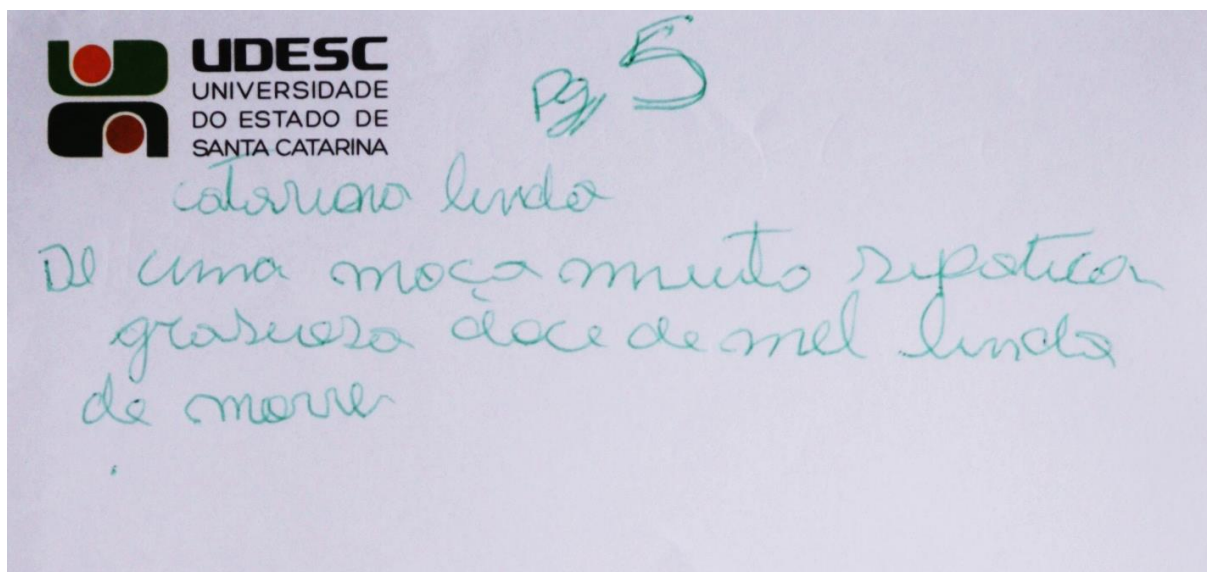 UDESC
UNIVERSIDADE
DO ESTADO DE
SANTA CATARINA
pg, 5
catariana linda
De uma moça muito sipatica
grasiosa doce de mel linda
de morre
.